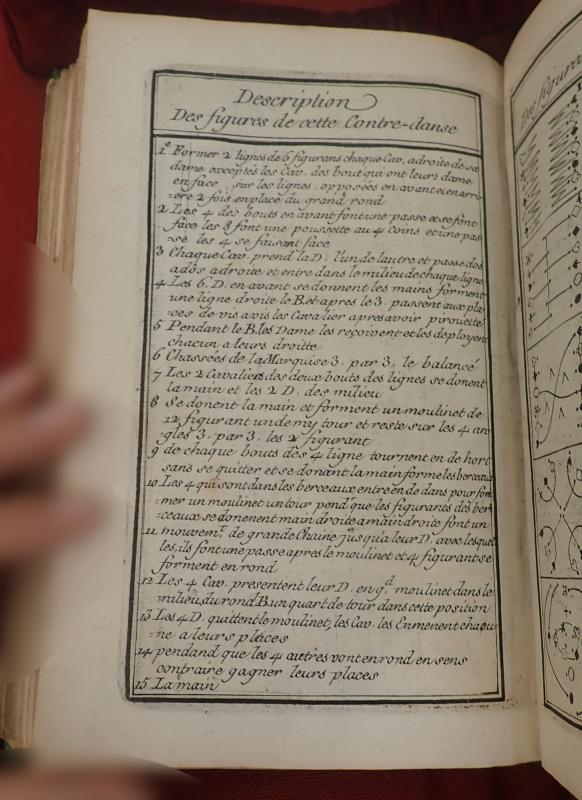 Description
Des figures de cette Contre-danse
1.e Former 2 lignes de 6 figurans chaque Cav. a droite de sa
dame exceptés les Cav. des bout qui ont leurs dame
en face sur les lignes opposées en avant et en arr-
-ere 2 fois en place du grand rond
2 Les 4 des bouts en avant font une passe et se font
face les 8 font une poussette au 4 coins et une pas-
-se les 4 se faisant face
3 Chaque Cav. prend la D. l'un de lautre et passe dos
a dos a droite et entre dans le milieu de chaque ligne
4 Les 6. D. en avant se donnent les mains forment
une ligne droite le B. et apres le 3. passent aux pla-
-ces de vis avis les Cavalier apres avoir pirouetté
5 Pendant le B. les Dame les reçoivent et les deployent
chacun a leurs droitte
6 Chassées de la Marquise 3. par 3. le balancé
7 Les 2 Cavaliers des deux bouts des lignes se donent
la main et les 2 D. des milieu
8 Se donent la main et forment un moulinet de
12 figurant un demy tour et reste sur les 4 an-
gles 3. par 3. les 2 figurant
9 de chaque bouts des 4 ligne tournent en de hort
sans se quitter et se donant la main forme les berceaux
10 Les 4 qui sont dans les berceaux entre en de dans pour for
mer un moulinet un tour pend.t que les figurants des ber-
-ceaux se donenent main droite a main droite font un
11 mouvem.t de grande Chaine jusqu'a leur D. avec lesquel
les, ils font une passe apres le moulinet et 4 figurant se
forment en rond
12 Les 4 Cav. presentent leur D. en g.d moulinet dans le
milieu du rond B. un quart de tour dans cette position
13 Les 4 D. quittent le moulinet, les Cav. les Enmenent chacu-
-ne a leurs pláces
14 pendand que les 4 autres vont en rond en sens
contraire gagner leurs places
15 La main